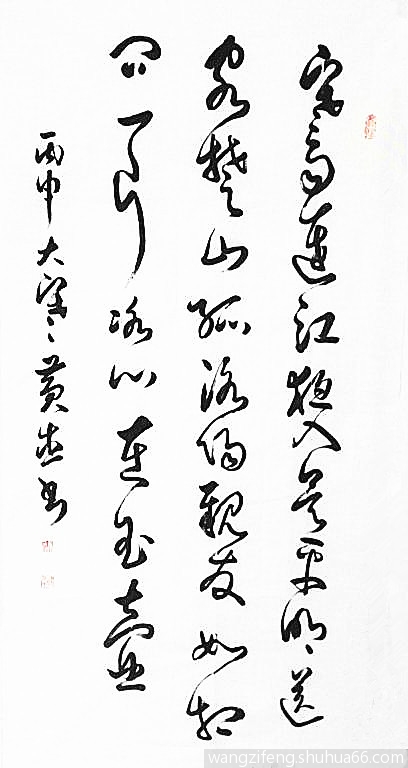 寒雨連江夜入吳平明送
客楚山孤洛陽親友如相
問一片冰心在玉壺
丙申大寒黄书
wangzifeng.shuhua66.com